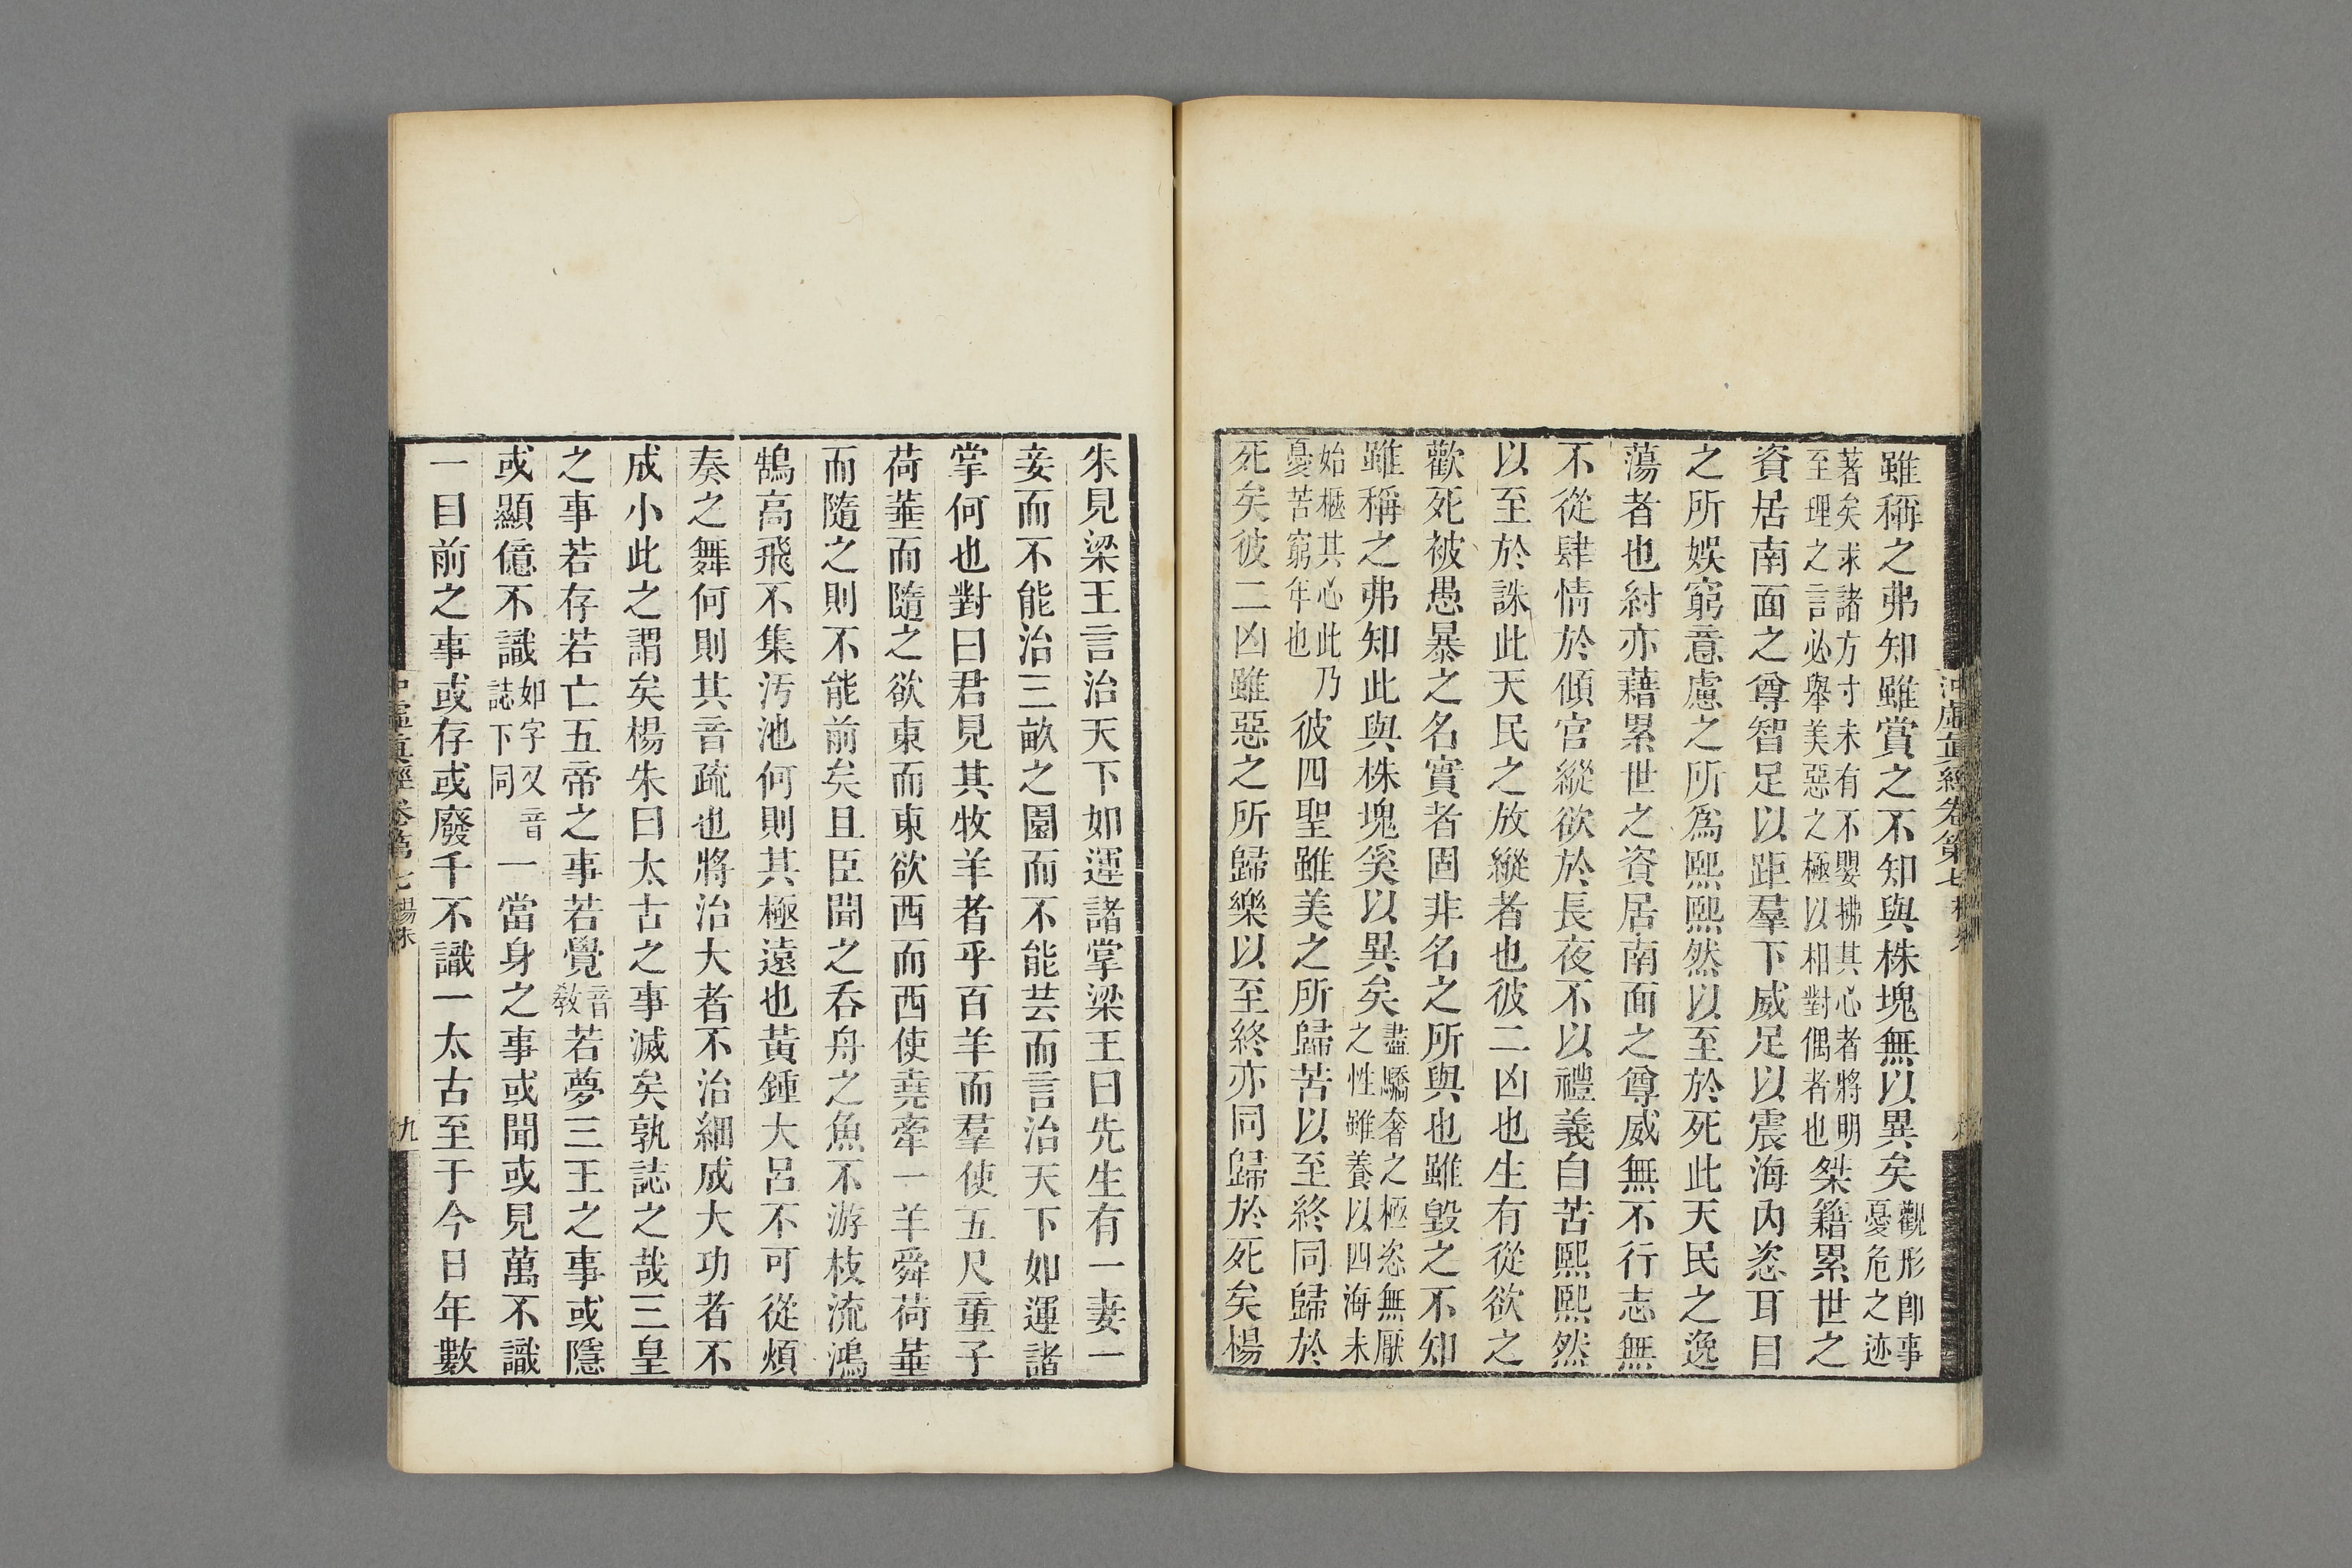 雖稱之弗知雖賞之不知與株塊無以異矣觀形卽事憂危之迹
著矣求諸方寸未有不嬰拂其心者將明至理之言必舉美惡之極以相對偶者也桀藉累世之
資居南面之尊智足以距羣下威足以震海內恣耳目
之所娛窮意慮之所爲熙熙然以至於死此天民之逸
蕩者也紂亦藉累世之資居南面之尊威無不行志無
不從肆情於傾宮縱欲於長夜不以禮義自苦熙熙然
以至於誅此天民之放縱者也彼二凶也生有從欲之
歡死被愚暴之名實者固非名之所與也雖毀之不知
雖稱之弗知此與株塊奚以異矣盡驕奢之極恣無厭之性雖養以四海未
始惬其心此乃憂苦窮年也彼四聖雖美之所歸苦以至終同歸於
死矣彼二凶雖惡之所歸樂以至終亦同歸於死矣楊
朱見梁王言治天下如運諸掌梁王曰先生有一妻一
妾而不能治三畝之園而不能芸而言治天下如運諸
掌何也對曰君見其牧羊者乎百羊而羣使五尺童子
荷箠而隨之欲東而東欲西而西使堯牽一羊舜荷箠
而隨之則不能前矣且臣聞之吞舟之魚不游枝流鴻
鵠高飛不集汚池何則其極遠也黃鍾大呂不可從煩
奏之舞何則其音疏也將治大者不治細成大功者不
成小此之謂矣楊朱曰太古之事滅矣孰誌之哉三皇
之事若存若亡五帝之事若覺音敎若夢三王之事或隱
或顯億不識如字又音誌下同一當身之事或聞或見萬不識
一目前之事或存或廢千不識一太古至于今日年數
沖虛眞經卷第七 楊朱
九